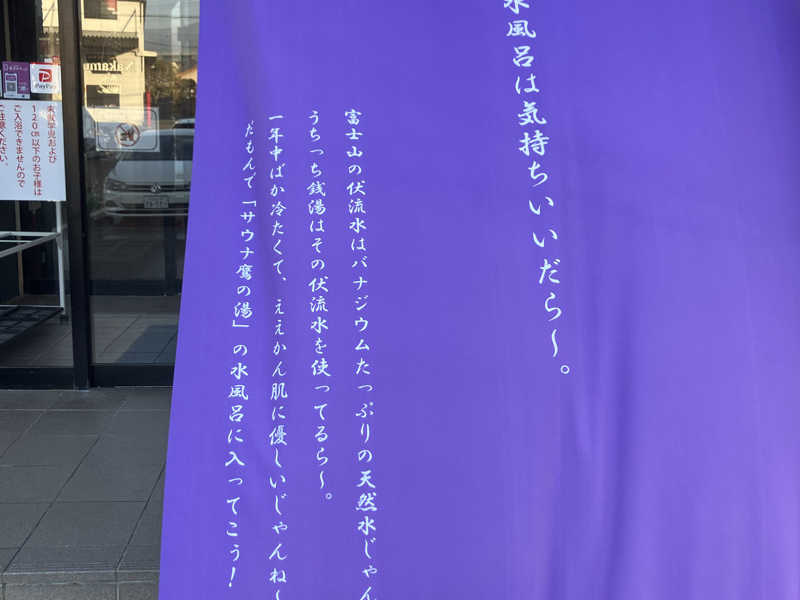 水風呂は気持ちいいだら〜。
富士山の伏流水はバナジウムたっぷりの天然水じゃん
うちっち銭湯はその伏流水を使ってるら〜。
一年中ばか冷たくて、ええかん肌に優しいじゃんね〜
だもんで「サウナ鷹の湯」の水風呂に入ってこう!
PayPay
未就学児および
120cm以下のお子様は
ご入浴できませんので
ご注意ください。
Nakamu